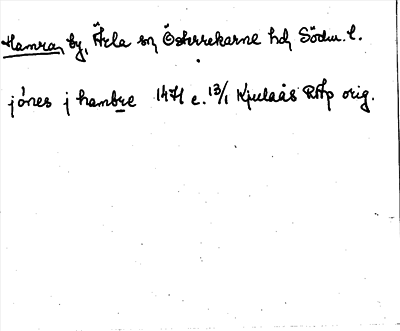 Hamra, by, Ärla sn, Österrekarne hd, Södm. l.
jönes j hambre 1471 e. 13/1 Kjulaås RAp orig.